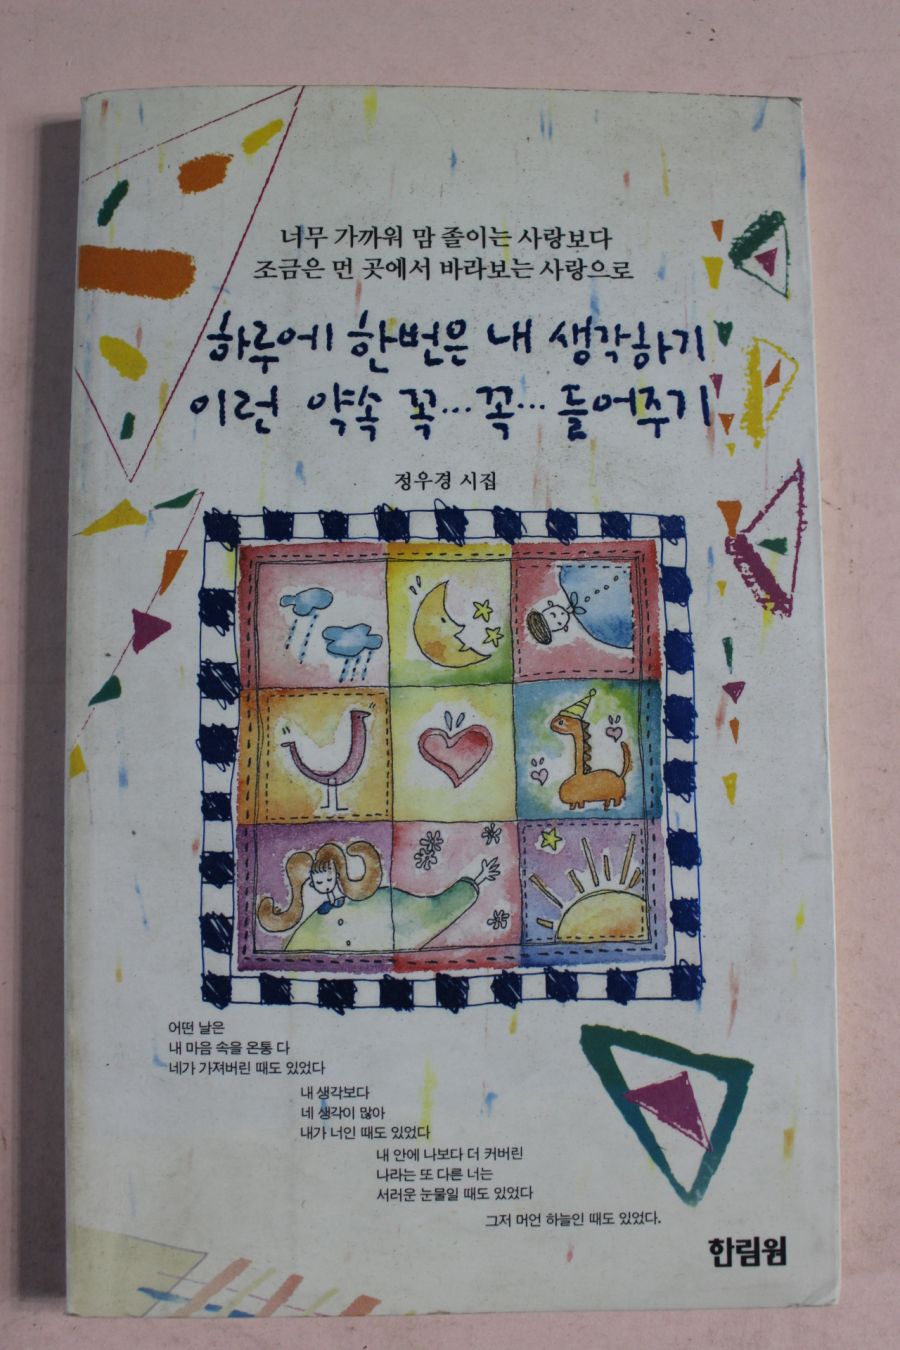 너무 가까워 맘 졸이는 사랑보다
조금은 먼 곳에서 바라보는 사랑으로
하루에 한번은 내 생각하기
이런 약속 꼭…꼭… 들어주기
정우경 시집
어떤 날은
내 마음 속을 온통 다
네가 가져버린 때도 있었다
내 생각보다
네 생각이 많아
내가 너인 때도 있었다
내 안에 나보다 더 커버린
나라는 또 다른 너는
서러운 눈물일 때도 있었다
그저 머언 하늘인 때도 있었다.
한림원